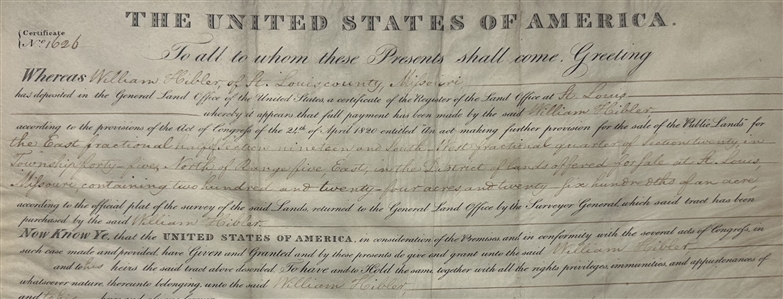 THE UNITED STATES OF AMERICA.
Certificate
No. 1626
To all to whom these Presents shall come, Greeting
Whereas William Hibler, of St. Louis county, Missouri
has deposited in the General Land Office of the United States, a certificate of the Register of the Land Office at St. Louis
whereby it appears that full payment has been made by the said William Hibler
according to the provisions of the Act of Congress of the 24th of April 1820 entitled An act making further provision for the sale of the Public Lands for
the East fractional section nineteen and South West fractional quarter of section twenty in
Township forty-five, North, of Range five East, in the District of lands offered for sale at St. Louis
Missouri, containing two hundred and twenty-four acres and twenty-six hundredths of an acre
according to the official plat of the survey of the said Lands, returned to the General Land Office by the Surveyor General, which said tract has been
purchased by the said William Hibler
Now Know Ye, that the UNITED STATES OF AMERICA, in consideration of the Premises, and in conformity with the several acts of Congress, in
such case made and provided, have Given and Granted and by these presents do give and grant unto the said William Hibler
and to his heirs the said tract above described To have and to Hold the same, together with all the rights, privileges, immunities, and appurtenances of
whatsoever nature, thereunto belonging, unto the said William Hibler
and to